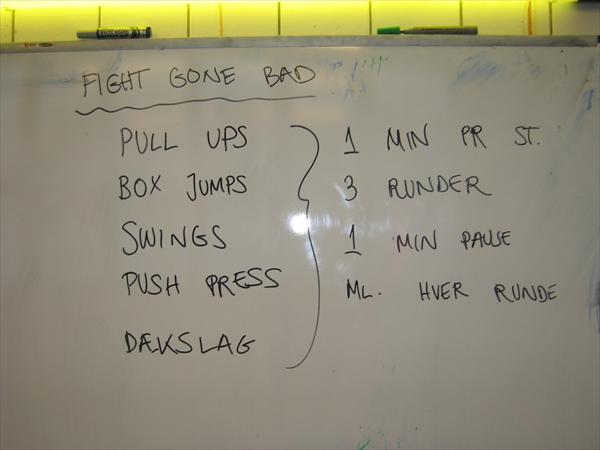 FIGHT GONE BAD
PULL UPS
BOX JUMPS
SWINGS
PUSH PRESS
DÆKSLAG
1 MIN PR ST.
3 RUNDER
1 MIN PAUSE
ML. HVER RUNDE